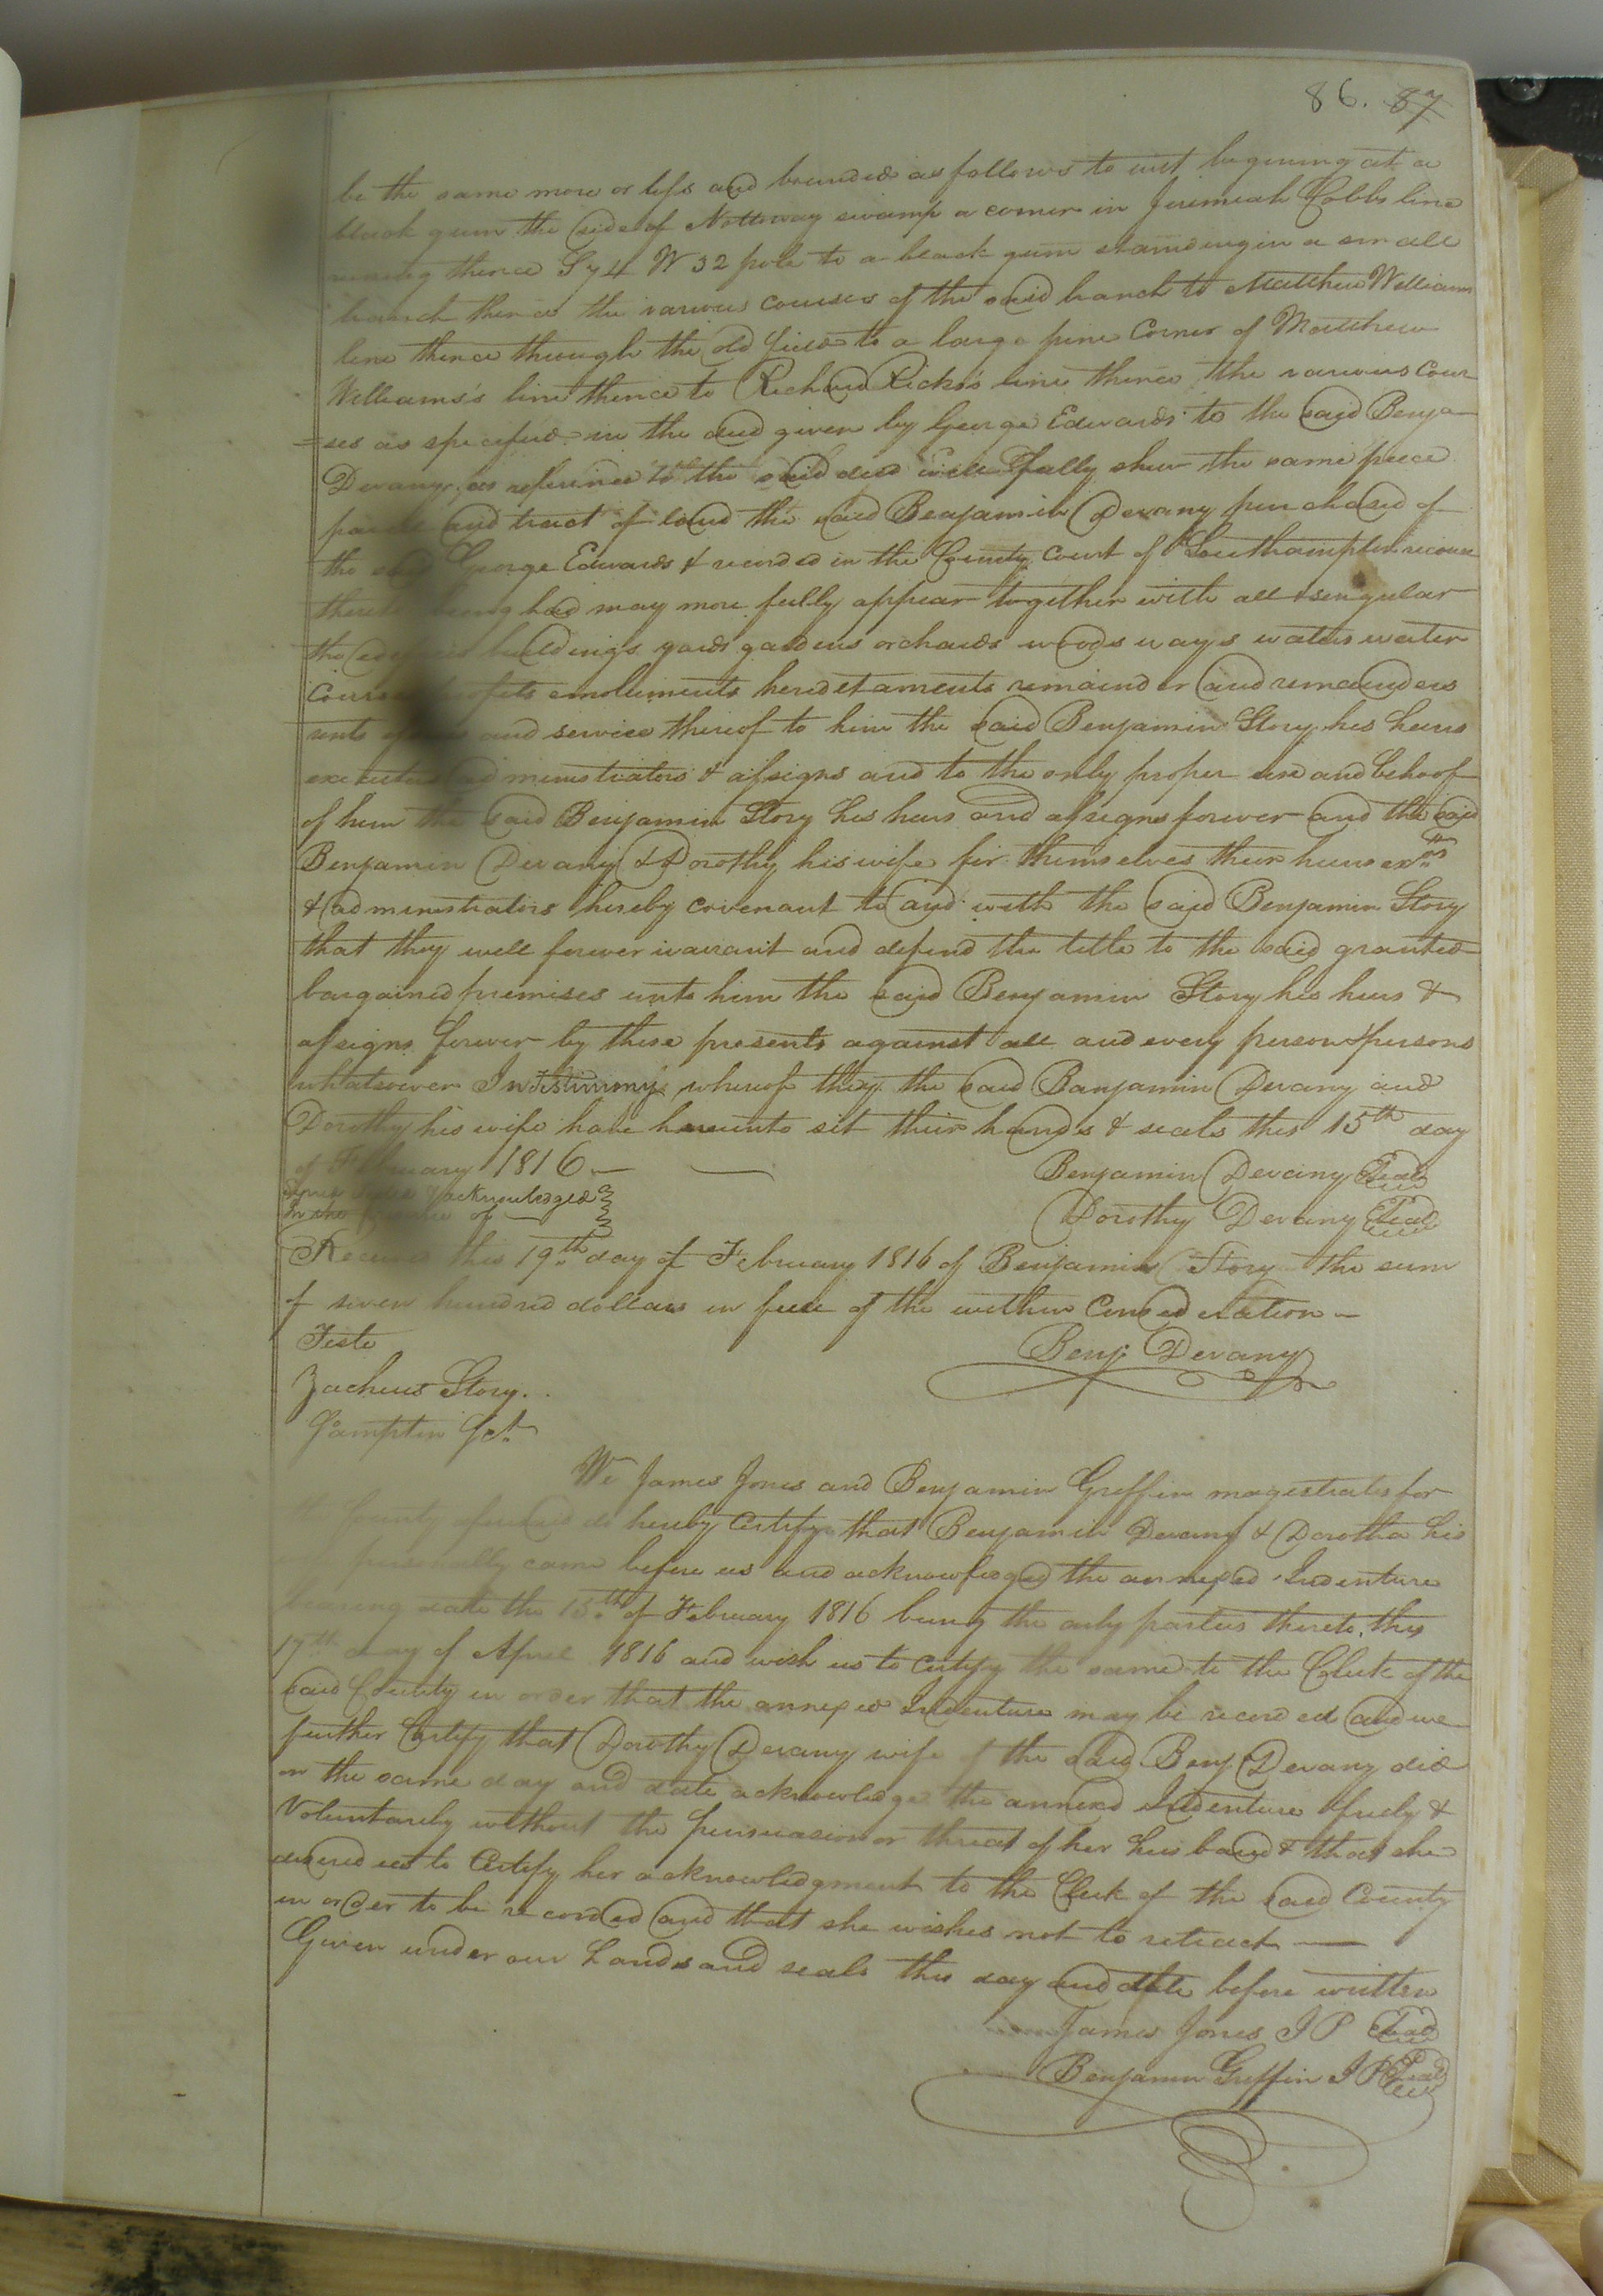 86. 87
be the same more or less and bounded as follows to wit begining at a
black gum the side of Nottoway swamp a corner in Jeremiah Cobbs line
runing thence S 74 W 32 pole to a black gum standing in a small
branch thence the various courses of the said branch to Matthew Williams
line thence through the old field to a large pine corner of Matthew
Williams's line thence to Richard Ricks's line thence the various cour
=ses as specified in the deed given by George Edwards to the said Benja
Devany, as reference to the said deed will fully shew the same piece
and tract of land the said Benjamin Devany purchased of
the said George Edwards & recorded in the County Court of Southampton recourse
thereto being had may more fully appear together with all & singular
the buildings yards gardens orchards woods ways waters water
Courses profits emoluments heredetaments remainder and remainders
rents and service thereof to him the said Benjamin Story his heirs
executors administrators & assigns and to the only proper use and behoof
of him the said Benjamin Story his heirs and assigns forever and the said
Benjamin Devany & Dorothy his wife for themselves their heirs exrs
& administrators hereby covenant to and with the said Benjamin Story
that they will forever warrant and defend the title to the said granted
bargained premises unto him the said Benjamin Story his heirs &
assigns forever by these presents against all and every person & persons
whatsoever In Testimony whereof they the said Banjamin Devany and
Dorothy his wife have hereunto sit their hands & seals this 15th day
of February 1816 —
Benjamin Devany Seal
acknowledged
In the presence of —
Dorothy Devany Seal
Received this 19th day of February 1816 of Benjamin Story the sum
of seven hundred dollars in full of the within Consederation —
Teste
Benj Devany
Zacheus Story.
Hampton Sct
We James Jones and Benjamin Griffin magestrates for
County aforesaid do hereby Certify that Benjamin Devany & Dorotha his
personally came before us and acknowledged the annexed Indenture
bearing date the 15th of February 1816 being the only parties thereto, this
17th day of April 1816 and wish us to Certify the same to the Clerk of the
said County in order that the annexed Indenture may be recorded and we
further Certify that Dorothy Devany wife of the said Benj Devany did
on the same day and date acknowledge the annexed Indenture freely &
Voluntarily without the persuasion or threat of her husband & that she
desired us to Certify her acknowledgment to the Clerk of the said County
in order to be recorded and that she wishes not to retract —
Given under our hands and seals this day and date before written
James Jones J P Seal
Benjamin Griffin J P Seal